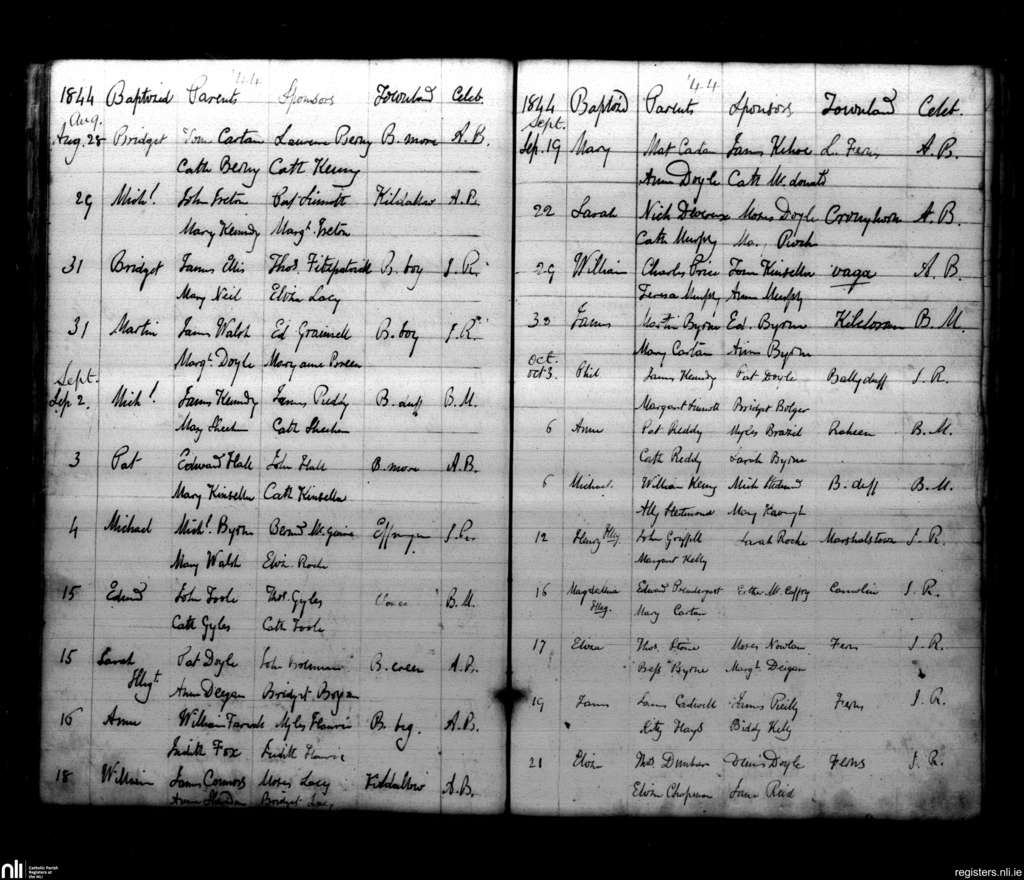 '44
1844 Baptized Parents Sponsors Townland Celeb.
Aug.
Aug. 28 Bridget Tom Cartan Laurence Berny B. more A. B.
Cath Berny Cath Kenny
29 Michl. John Ireton Pat Sinnott Kildallow A. B.
Mary Kennedy Margt. Ireton
31 Bridget James Ellis Thos. Fitzpatrick B. boy J. R.
Mary Neil Elvin Lacy
31 Martin James Walsh Ed B. boy J. R.
Margt. Doyle Maryanne Breen
Sept.
Sep 2. Michl. James Kennedy James Reddy B. duff B. M.
Mary Sheehan Cath Sheehan
3 Pat Edward Hall John Hall B. more A. B.
Mary Kinsella Cath Kinsella
4 Michael Michl. Byrne Bernd McGuire J. R.
Mary Walsh Elvin Roche
15 Edmd John Toole Thos. Gyles B. M.
Cath Gyles Cath Toole
15 Sarah Pat Doyle John B. A. B.
Illigt. Ann Deegan Bridget Bogan
16 Anne William Myles B. beg. A. B.
Judith Fox Judith
18 William James Connors Moses Lacy Kildallow A. B.
Bridget Lacy
'44
1844 Baptizd Parents Sponsors Townland Celeb.
Sept.
Sep. 19 Mary Mat Cartan James Kehoe L. Ferns A. B.
Anne Doyle Cath McDonald
22 Sarah Nich Devereux Moses Doyle A. B.
Cath Murphy Ma. Roch
29 William Charles Price Tom Kinsella vaga A. B.
Teresa Murphy Anne Murphy
30 James Martin Byrne Ed. Byrne B. M.
Mary Cartan Anne Byrne
Oct.
Oct 3. Phil James Kennedy Pat Doyle Ballyduff J. R.
Margaret Sinnott Bridget Bolger
6 Anne Pat Reddy Myles Brazil Raheen B. M.
Cath Reddy Sarah Byrne
6 Michael. William Kenny Mich Redmond B. duff B. M.
Ally Redmond Mary Kavangh
12 Henry Illeg John Sarah Roche Marshalstown J. R.
Margaret Kelly
16 Magdalena Edward Prendergast Esther McCaffry Camolin J. R.
Illeg. Mary Cartan
17 Elvina Thos. Stone Moses Nowlan Ferns J. R.
Bess Byrne Margt. Deigan
19 James James Cadwell James Reilly Ferns J. R.
Kitty Hayd Biddy Kelly
21 Elvin Thos. Dunbar Denis Doyle Ferns J. R.
Elvin Chapman Jane Reid
nli Catholic Parish
Registers at
the NLI
registers.nli.ie